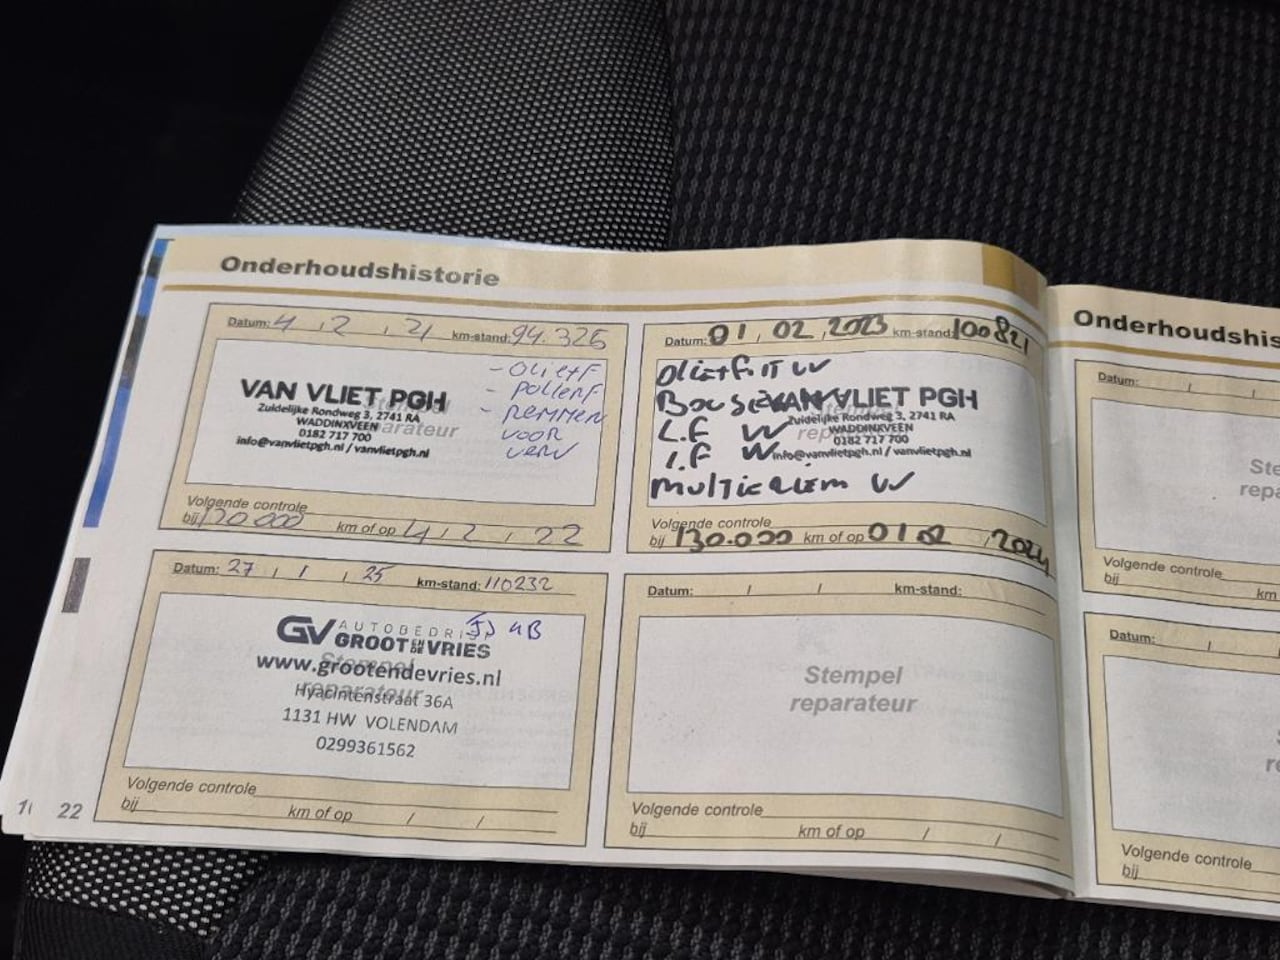 Onderhoudshistorie
Datum: 4 , 2 , 21 km-stand: 94.326
- OLIE + F
- POLLENF
- REMMEN
VOOR
VERV
VAN VLIET PGH
Zuidelijke Rondweg 3, 2741 RA
WADDINXVEEN
0182 717 700
info@vanvlietpgh.nl / vanvlietpgh.nl
Stempel
reparateur
Volgende controle
bij 120.000 km of op 4 , 2 , 22
Datum: 01 , 02 , 2023 km-stand: 100821
olie + filt VV
VAN VLIET PGH
Zuidelijke Rondweg 3, 2741 RA
WADDINXVEEN
0182 717 700
info@vanvlietpgh.nl / vanvlietpgh.nl
L.F VV
I.F VV
multiriem VV
Volgende controle
bij 130.000 km of op 01 02 , 2024
Datum: 27 , 1 , 25 km-stand: 110232
GV AUTOBEDRIJF
GROOT EN DE VRIES
www.grootendevries.nl
Stempel
reparateur
Hyacintenstraat 36A
1131 HW VOLENDAM
0299361562
Volgende controle
bij km of op / /
Datum: / / km-stand:
Stempel
reparateur
Volgende controle
bij km of op / /
22
Onderhoudshis
Datum: / /
Ste
repa
Volgende controle
bij km
Datum: /
Volgende controle
bij